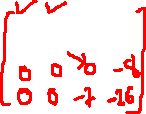 0 0 0 -9
0 0 -7 -16